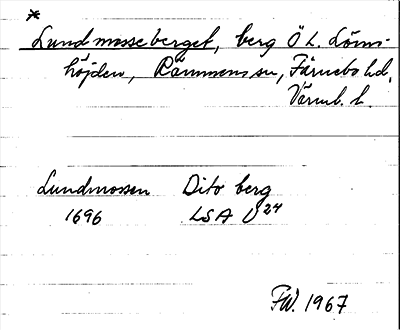 *
Lundmosseberget, berg Ö L. Löms-
höjden, Rämmens sn, Färnebo hd,
Värml. l.
Lundmossen Dito berg
1696 LSA U24
FW. 1967